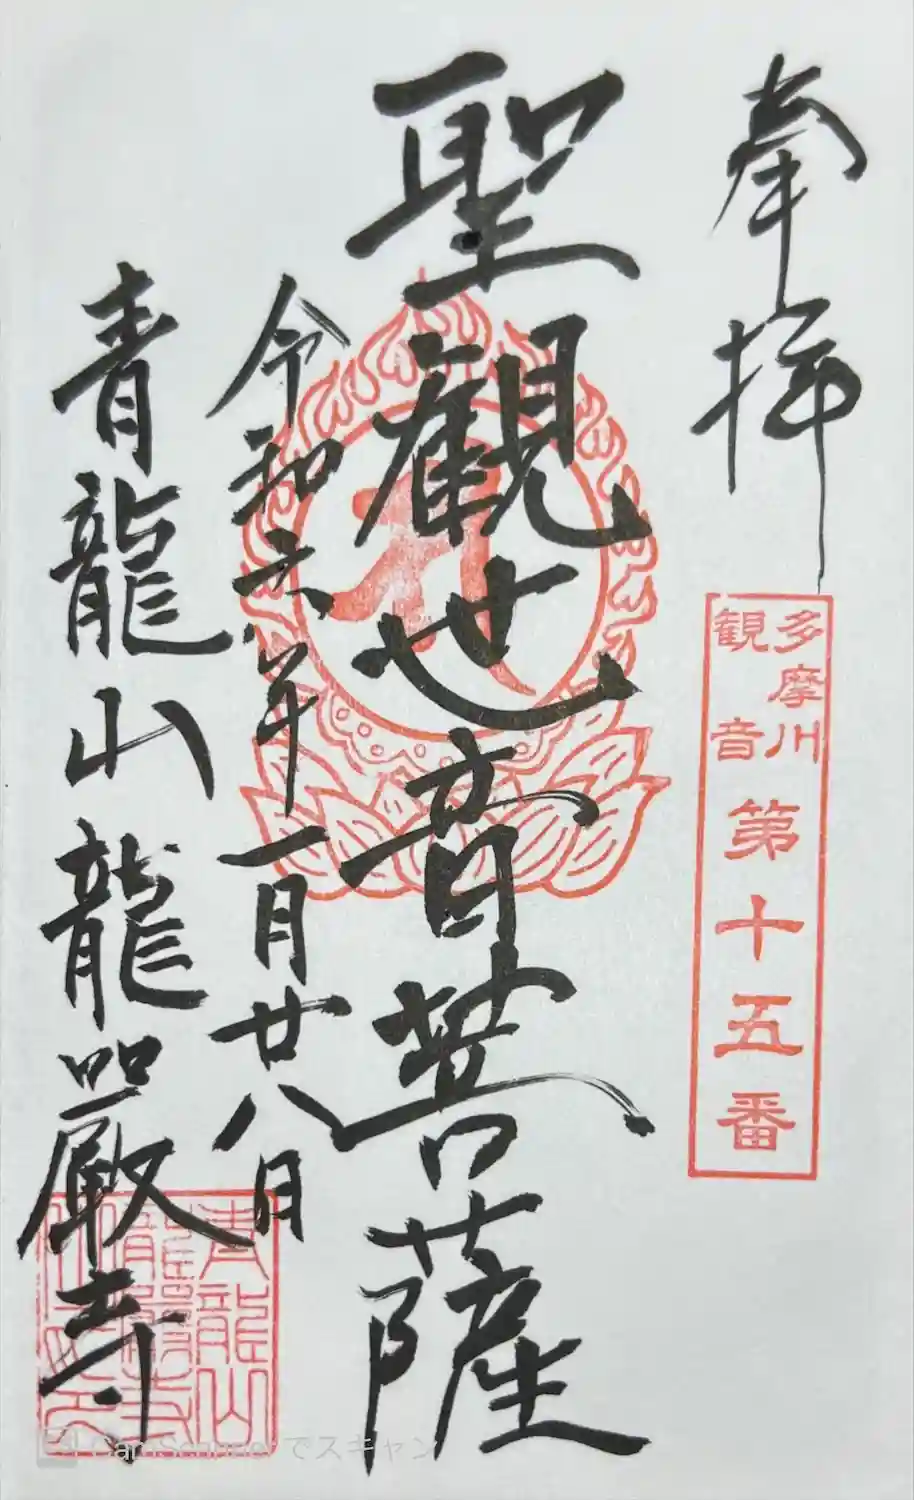 奉拝
多摩川
観音
第十五番
聖観世音菩薩
令和六年一月廿八日
青龍山龍巌寺
青龍山
龍巌寺
CamScanner でスキャン